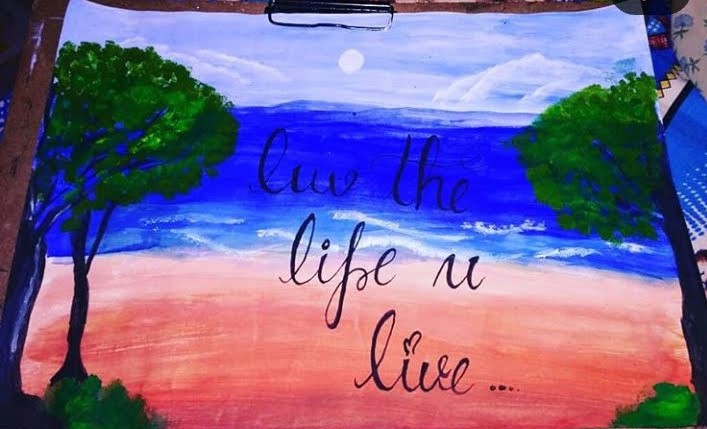 luv the
life u
live ....